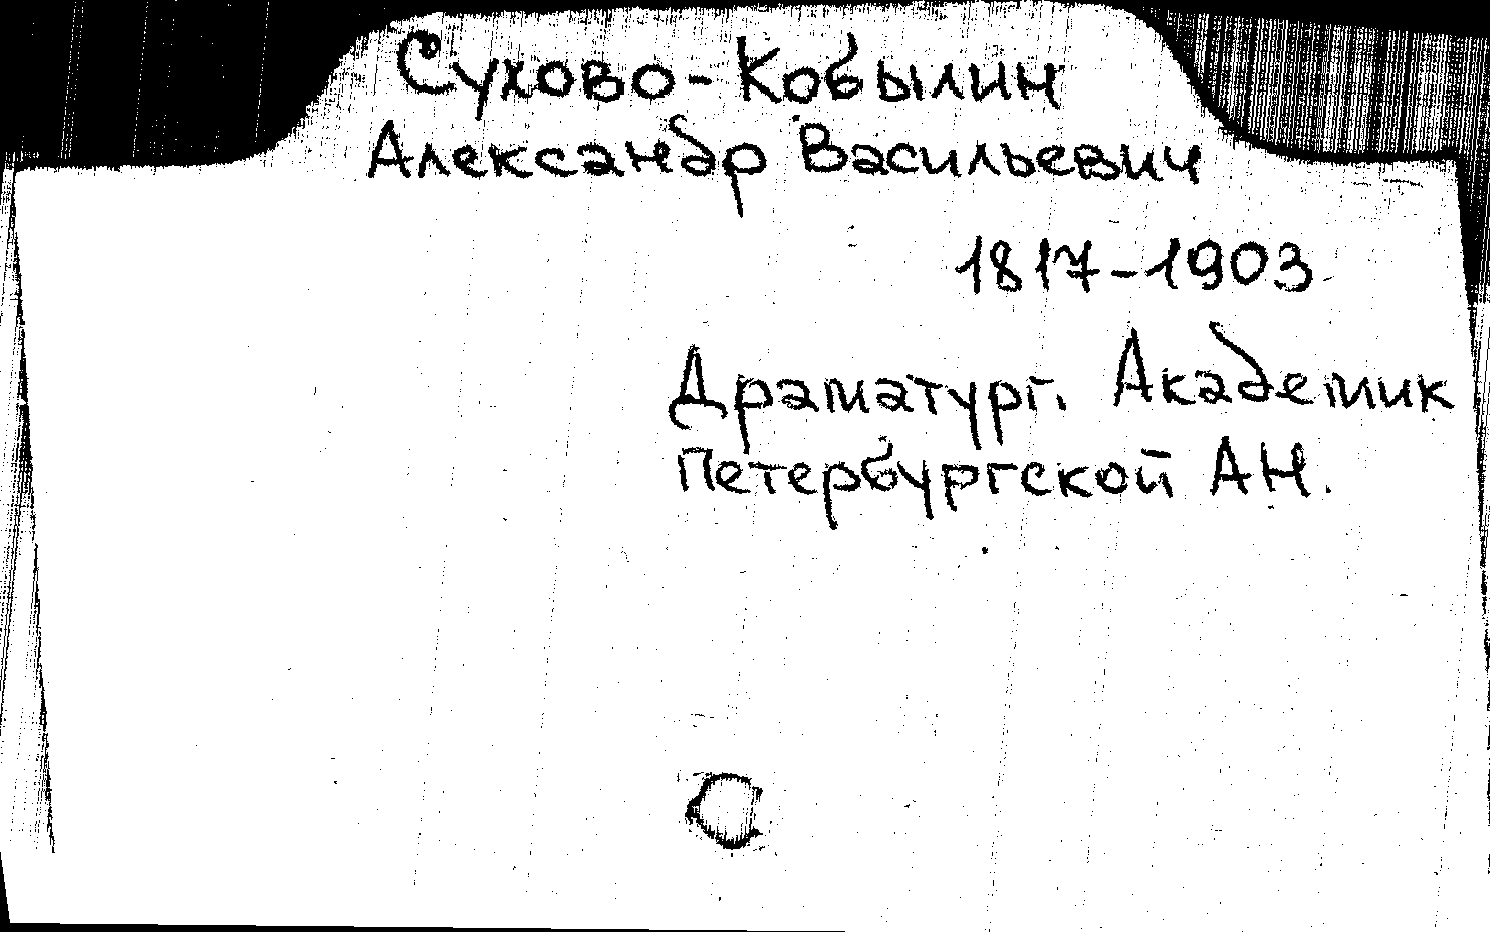 Сухово-Кобылин
Александр Васильевич
1817-1903
Драматург. Академик
Петербургской АН.